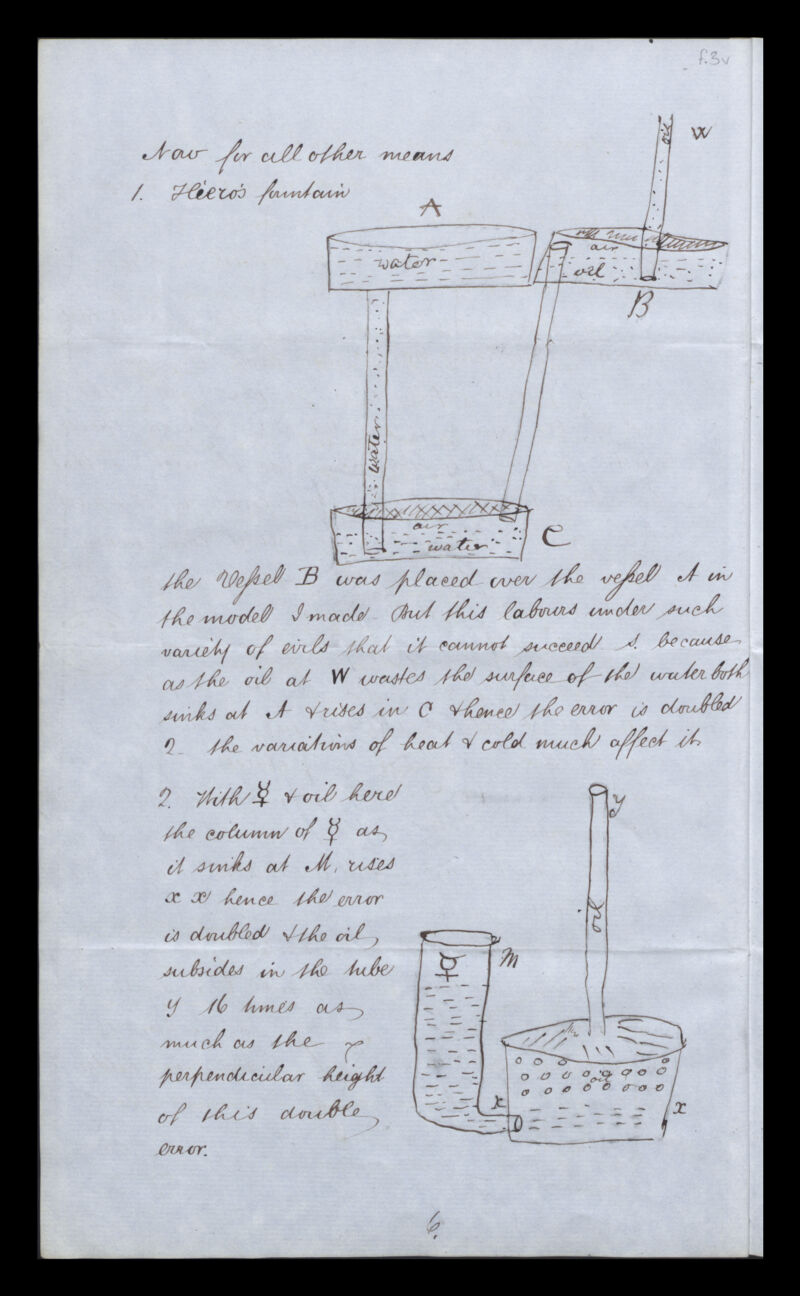 f.3v
Now for all other means
1. Hiero's fountain
oil
W
A
water
air
oil
B
water
air
water
C
the Veſsel B was placed over the veſsel A in
the model I made. But this labours under such
variety of evils that it cannot succeed 1. because
as the oil at W wastes the surface of the water both
sinks at A & rises in C & hence the error is doubled
2 the variations of heat & cold much affect it
2. With ☿ & oil here
the column of ☿ as
it sinks at M, rises
x x hence the error
is doubled & the oil
subsides in the tube
y 16 times as
much as the
perpendicular height
of this double
error.
y
oil
☿
M
oil
x
x
6.